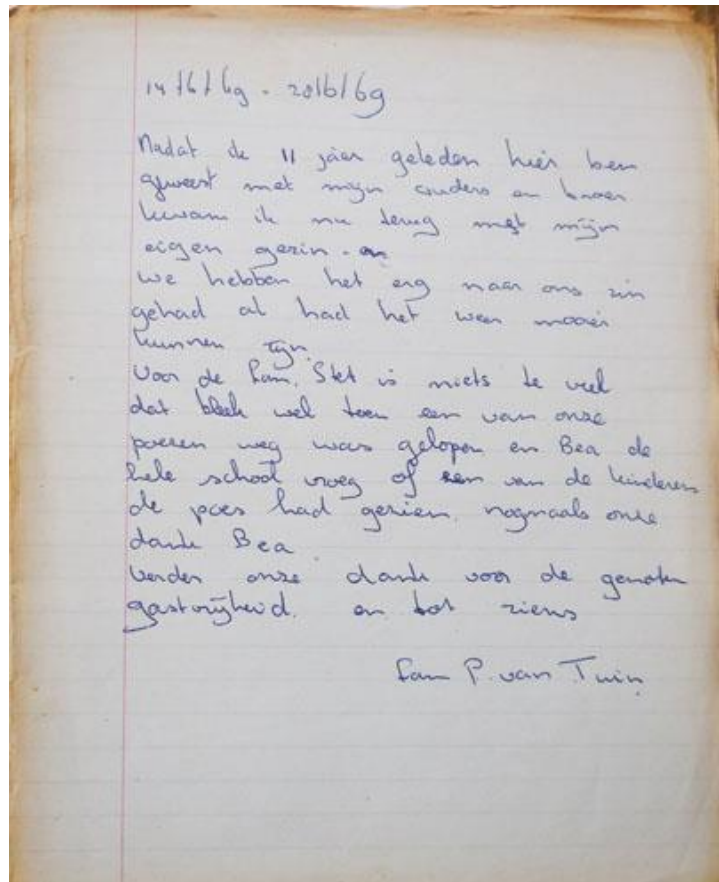 14/6/69 - 20/6/69
Nadat ik 11 jaar geleden hier ben
geweest met mijn ouders en broer
kwam ik nu terug met mijn
eigen gezin. en
we hebben het erg naar ons zin
gehad al had het weer mooier
kunnen zijn.
Voor de fam. Stet is niets te veel
dat bleek wel toen een van onze
poezen weg was gelopen en Bea de
hele school vroeg of een van de kinderen
de poes had gezien. nogmaals onze
dank Bea.
Verder onze dank voor de genoten
gastvrijheid. en tot ziens
fam P. van Tuin